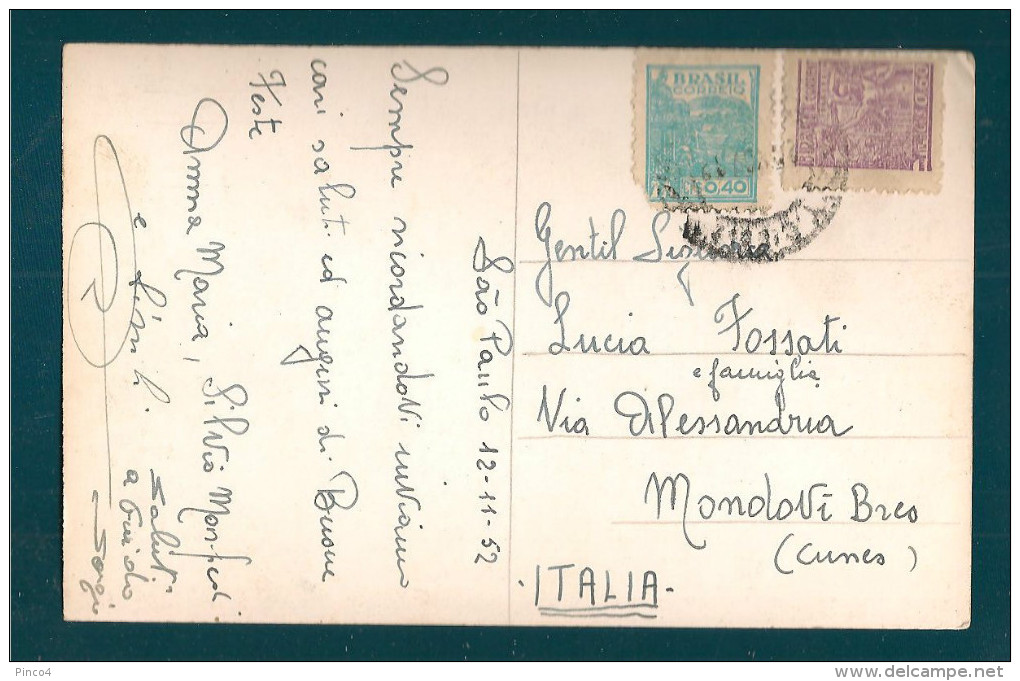 São Paulo 12-11-52
Sempre ricordandoVi inviamo
cari saluti ed auguri di Buone
Feste
Anna Maria, Silvio Monfredi
e
saluti
a Guido
Sergio
BRASIL
CORREIO
0,40
Gentil Signora
Lucia Fossati
e famiglia
Via Alessandria
MondoVì Breo
(Cuneo)
- ITALIA -
Pinco4
www.delcampe.net